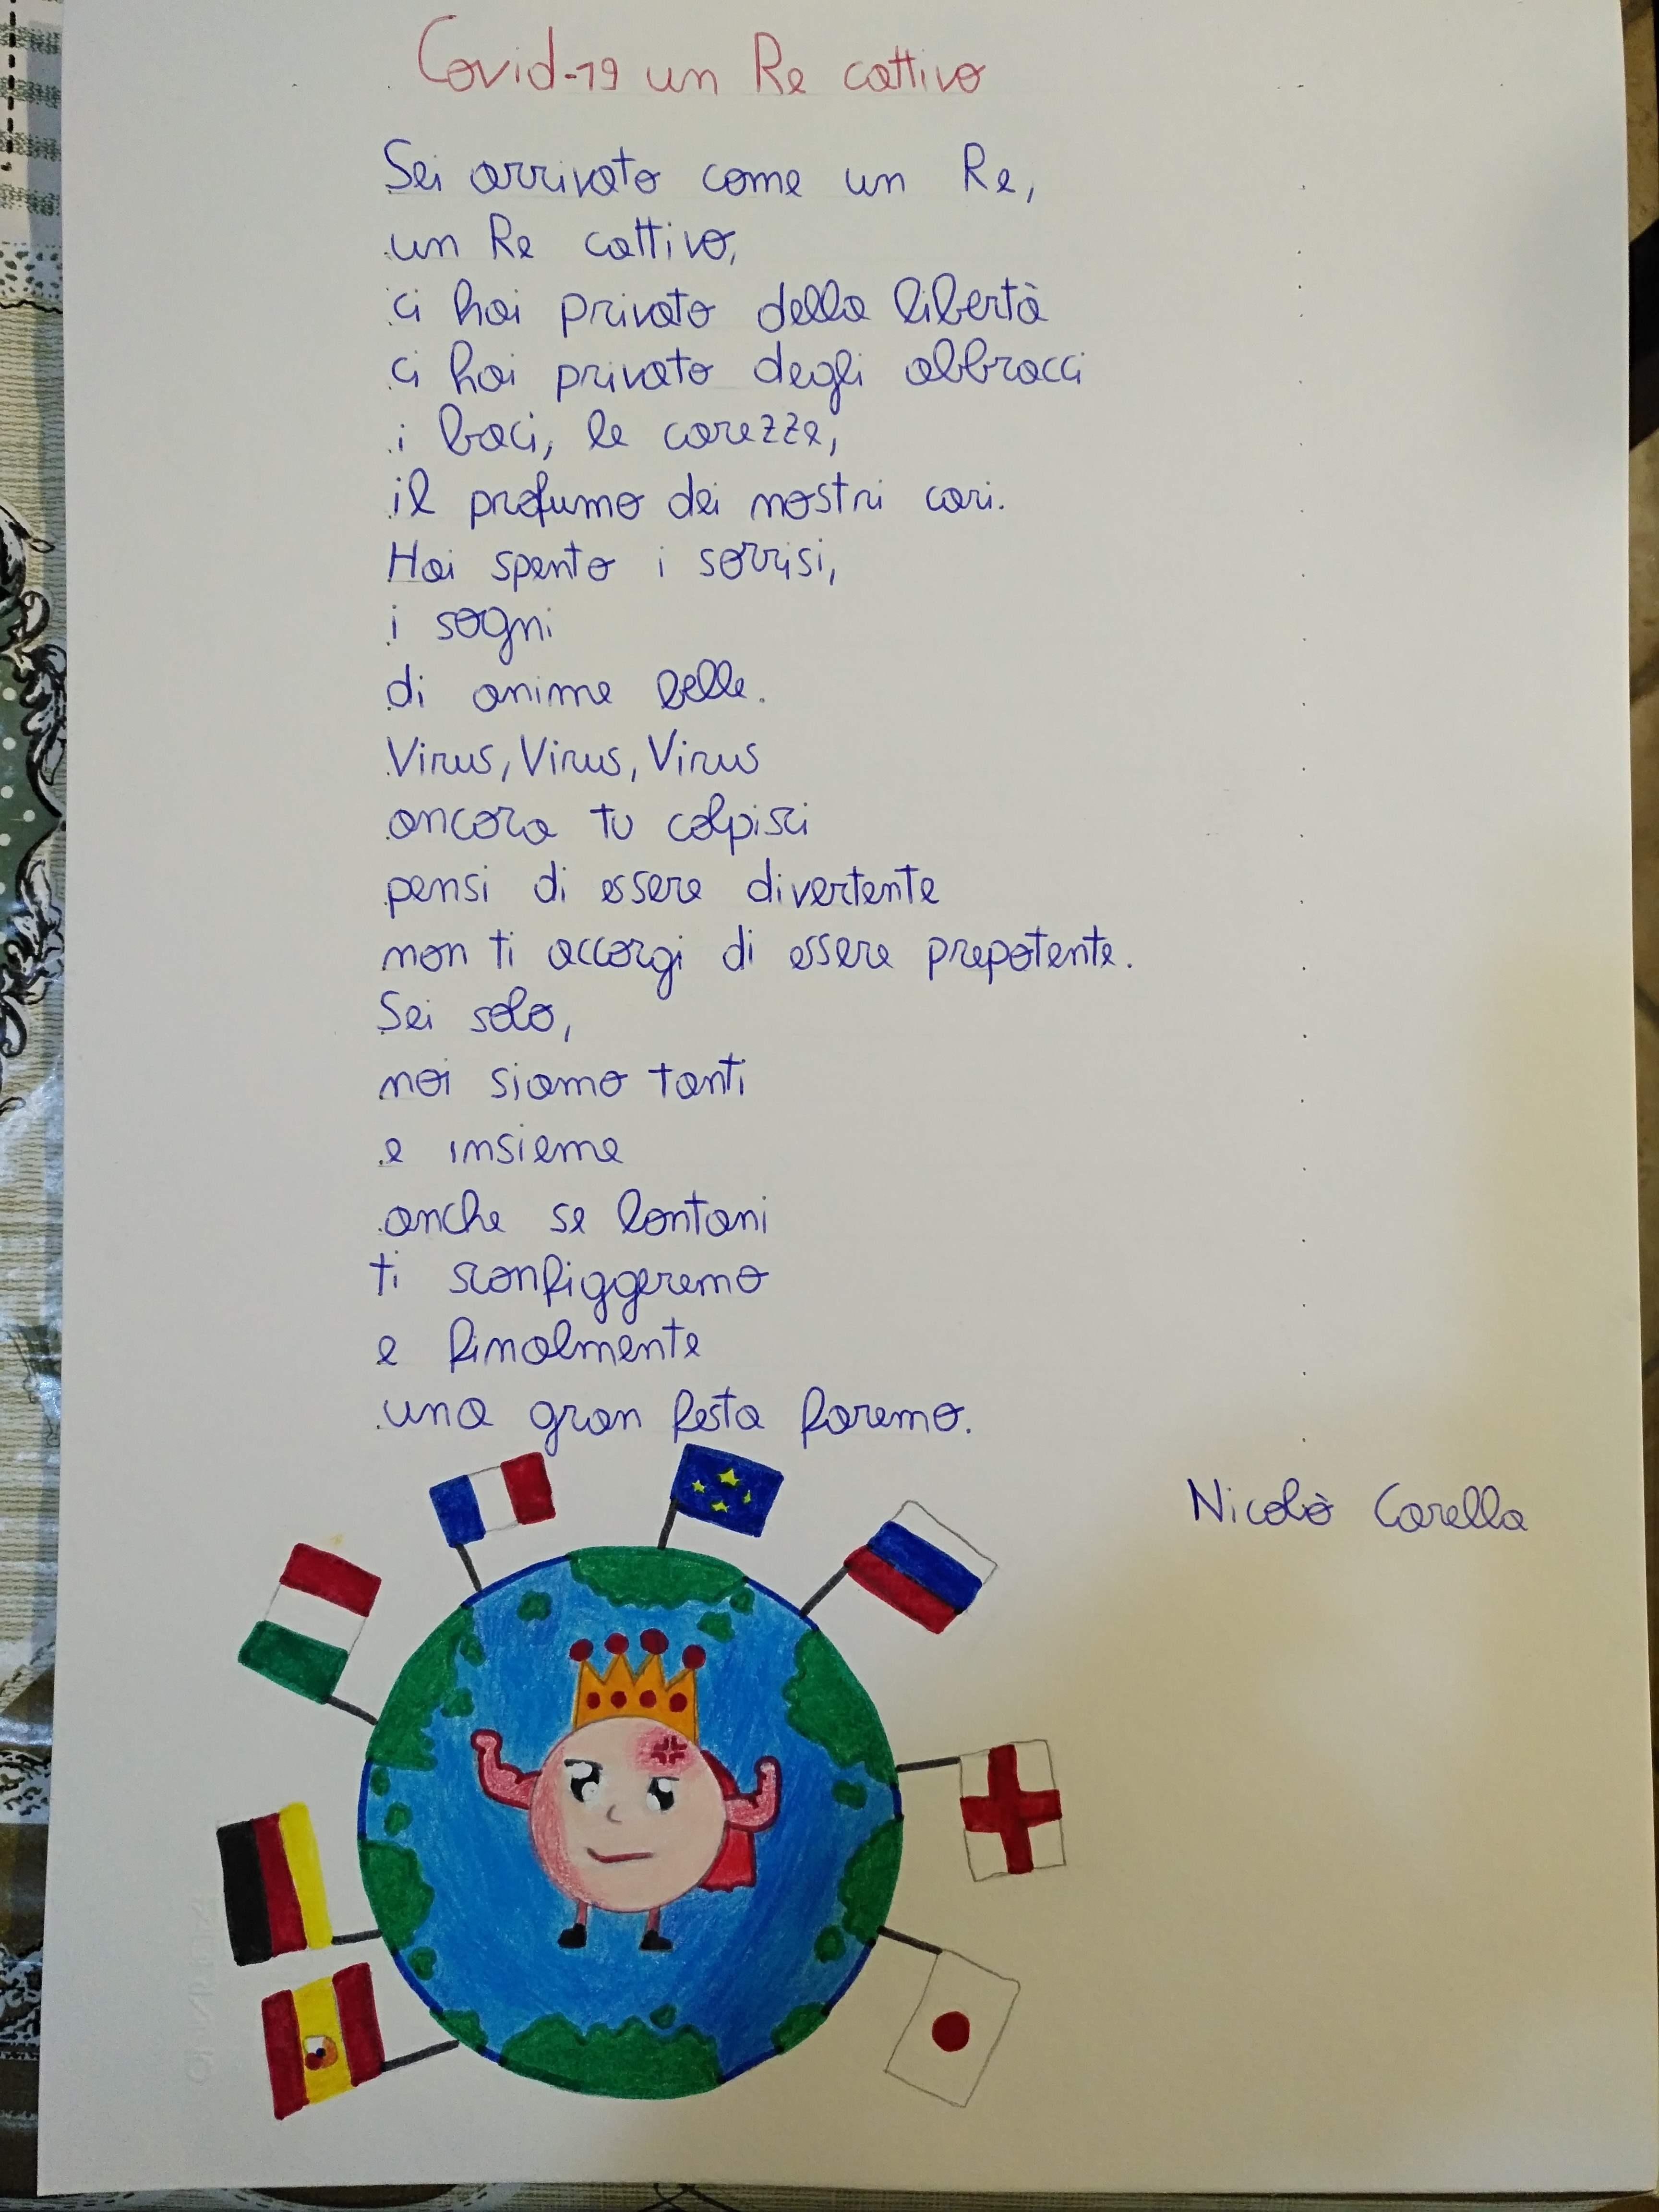 Covid-19 un Re cattivo
Sei arrivato come un Re,
un Re cattivo,
ci hai privato della libertà
ci hai privato degli abbracci
i baci, le carezze,
il profumo dei nostri cari.
Hai spento i sorrisi,
i sogni
di anime belle.
Virus, Virus, Virus
ancora tu colpisci
pensi di essere divertente
non ti accorgi di essere prepotente.
Sei solo,
noi siamo tanti
e insieme
anche se lontani
ti sconfiggeremo
e finalmente
una gran festa faremo.
Nicolò Carella